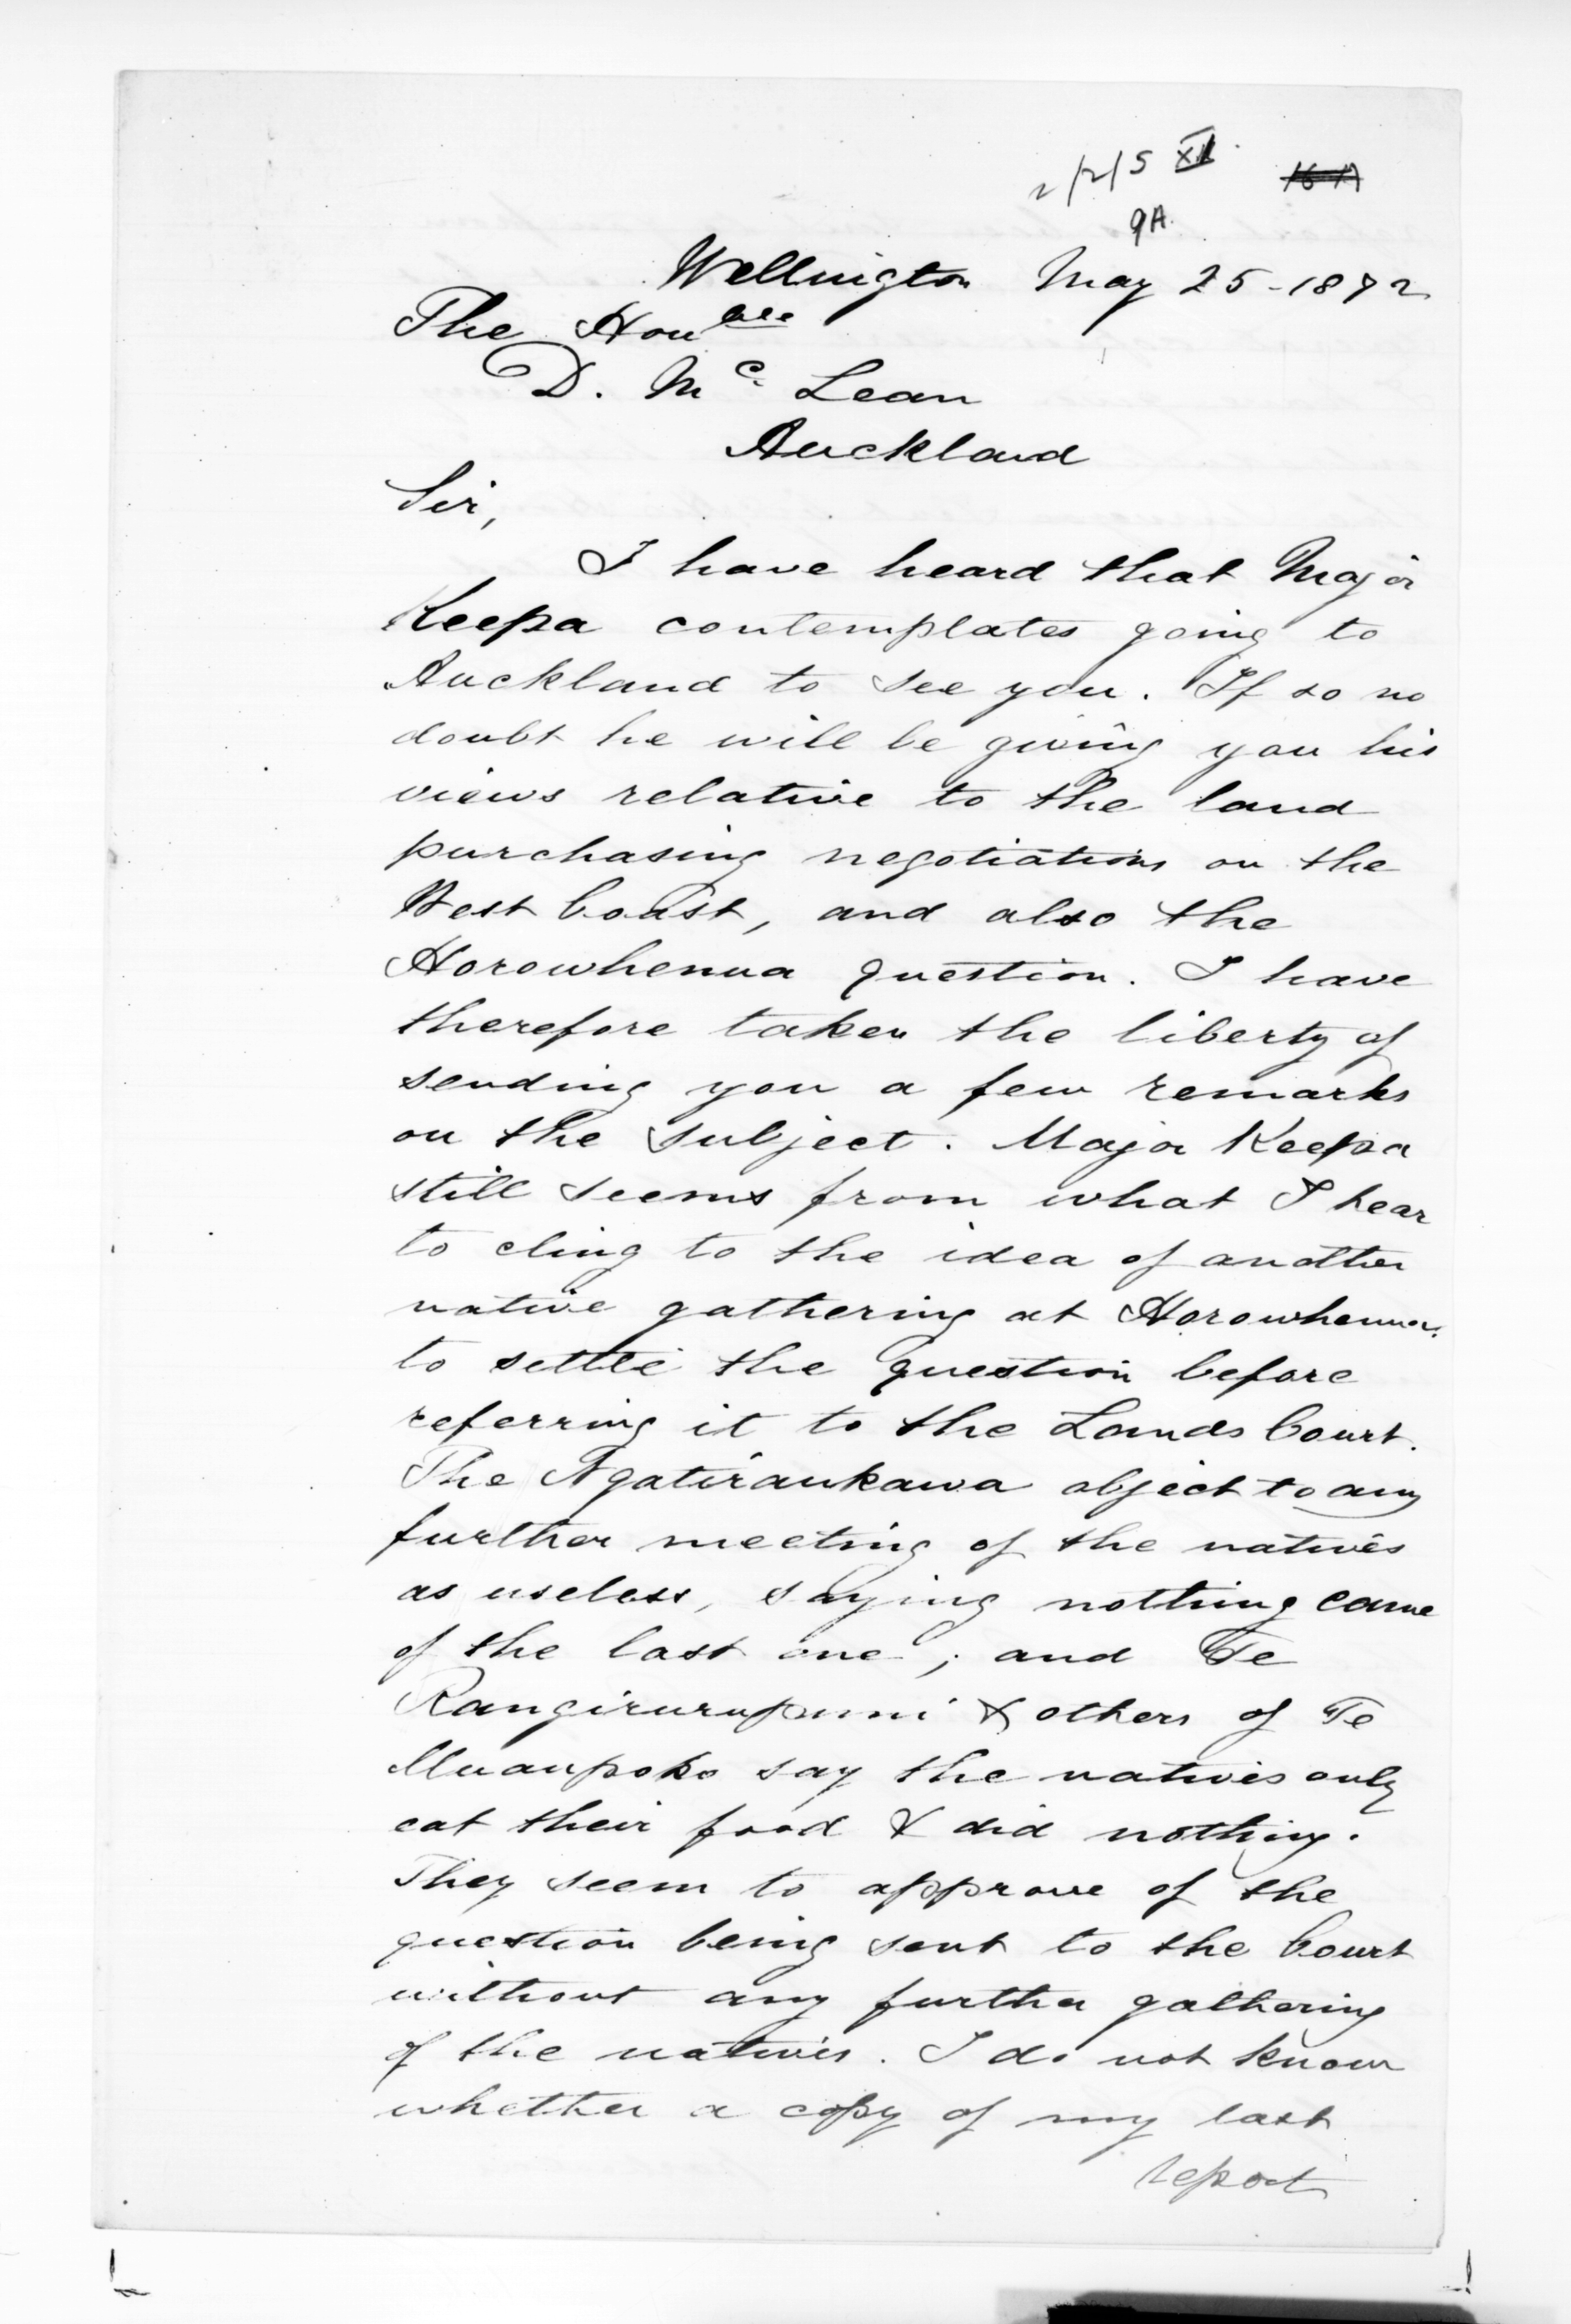 9A.
Wellington May 25-1872
The Honble
D. Mc Lean
Auckland
Sir,
I have heard that Major
Keepa contemplates going to
Auckland to see you. If so no
doubt he will be giving you his
views relative to the land
purchasing negotiations on the
West Coast, and also the
Horowhenua question. I have
therefore taken the liberty of
sending you a few remarks
on the subject. Major Keepa
still seems from what I hear
to cling to the idea of another
native gathering at Horowhenua
to settle the question before
referring it to the Lands Court.
The Ngatiraukawa object to any
further meeting of the natives
as useless, saying nothing came
of the last one; and Te
Rangirurupuni & others of Te
Muaupoko say the natives only
eat their food & did nothing.
They seem to approve of the
question being sent to the Court
without any further gathering
of the natives. I do not know
whether a copy of my last
report